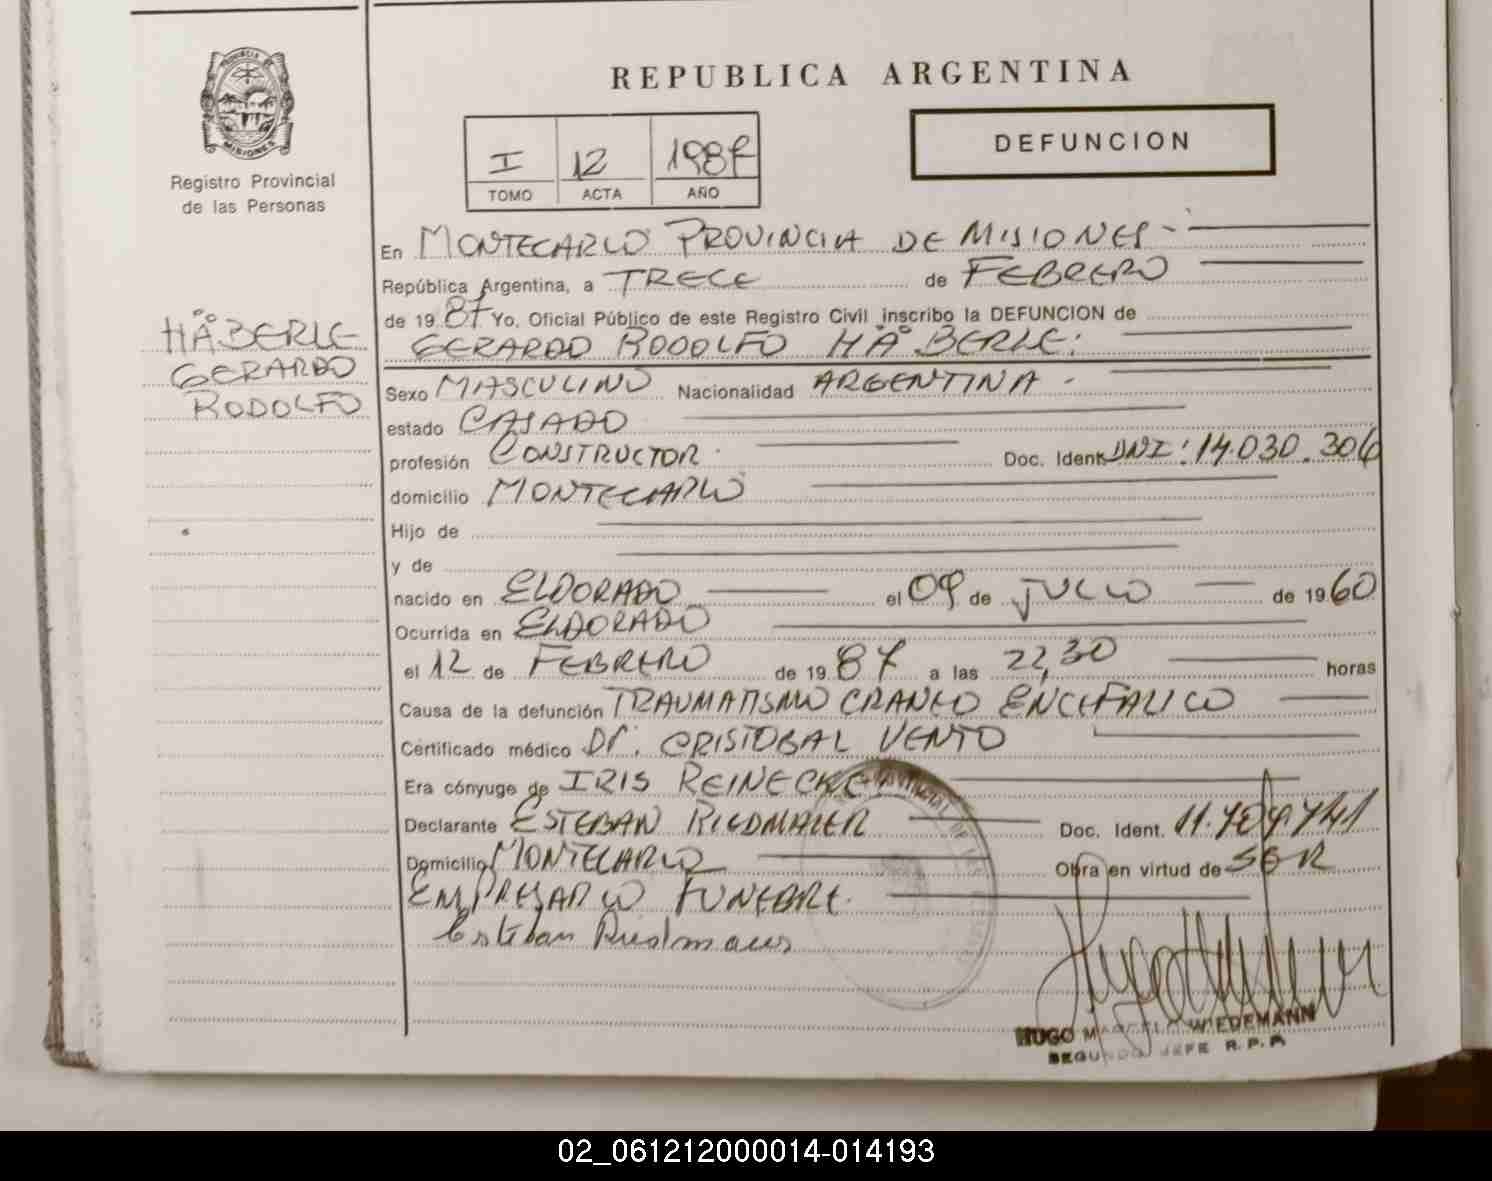 PROVINCIA DE
MISIONES
Registro Provincial
de las Personas
REPUBLICA ARGENTINA
I 12 1987
TOMO ACTA AÑO
DEFUNCION
HÄBERLE
GERARDO
RODOLFO
En MONTECARLO PROVINCIA DE MISIONES -
República Argentina, a TRECE de FEBRERO
de 1987 Yo, Oficial Público de este Registro Civil inscribo la DEFUNCION de
GERARDO RODOLFO HÄBERLE.
Sexo MASCULINO Nacionalidad ARGENTINA -
estado CASADO
profesión CONSTRUCTOR. Doc. Ident. DNI: 14.030.306
domicilio MONTECARLO
Hijo de
y de
nacido en ELDORADO el 09 de JULIO de 1960
Ocurrida en ELDORADO
el 12 de FEBRERO de 1987 a las 22,30 horas
Causa de la defunción TRAUMATISMO CRANEO ENCEFALICO
Certificado médico Dr. CRISTOBAL VENTO
Era cónyuge de IRIS REINECKE
Declarante ESTEBAN RIEDMAIER Doc. Ident.
Domicilio MONTECARLO Obra en virtud de SER
EMPRESARIO FUNEBRE.
Esteban
HUGO MARCELO WIEDEMANN
SEGUNDO JEFE R.P.P.
02_061212000014-014193